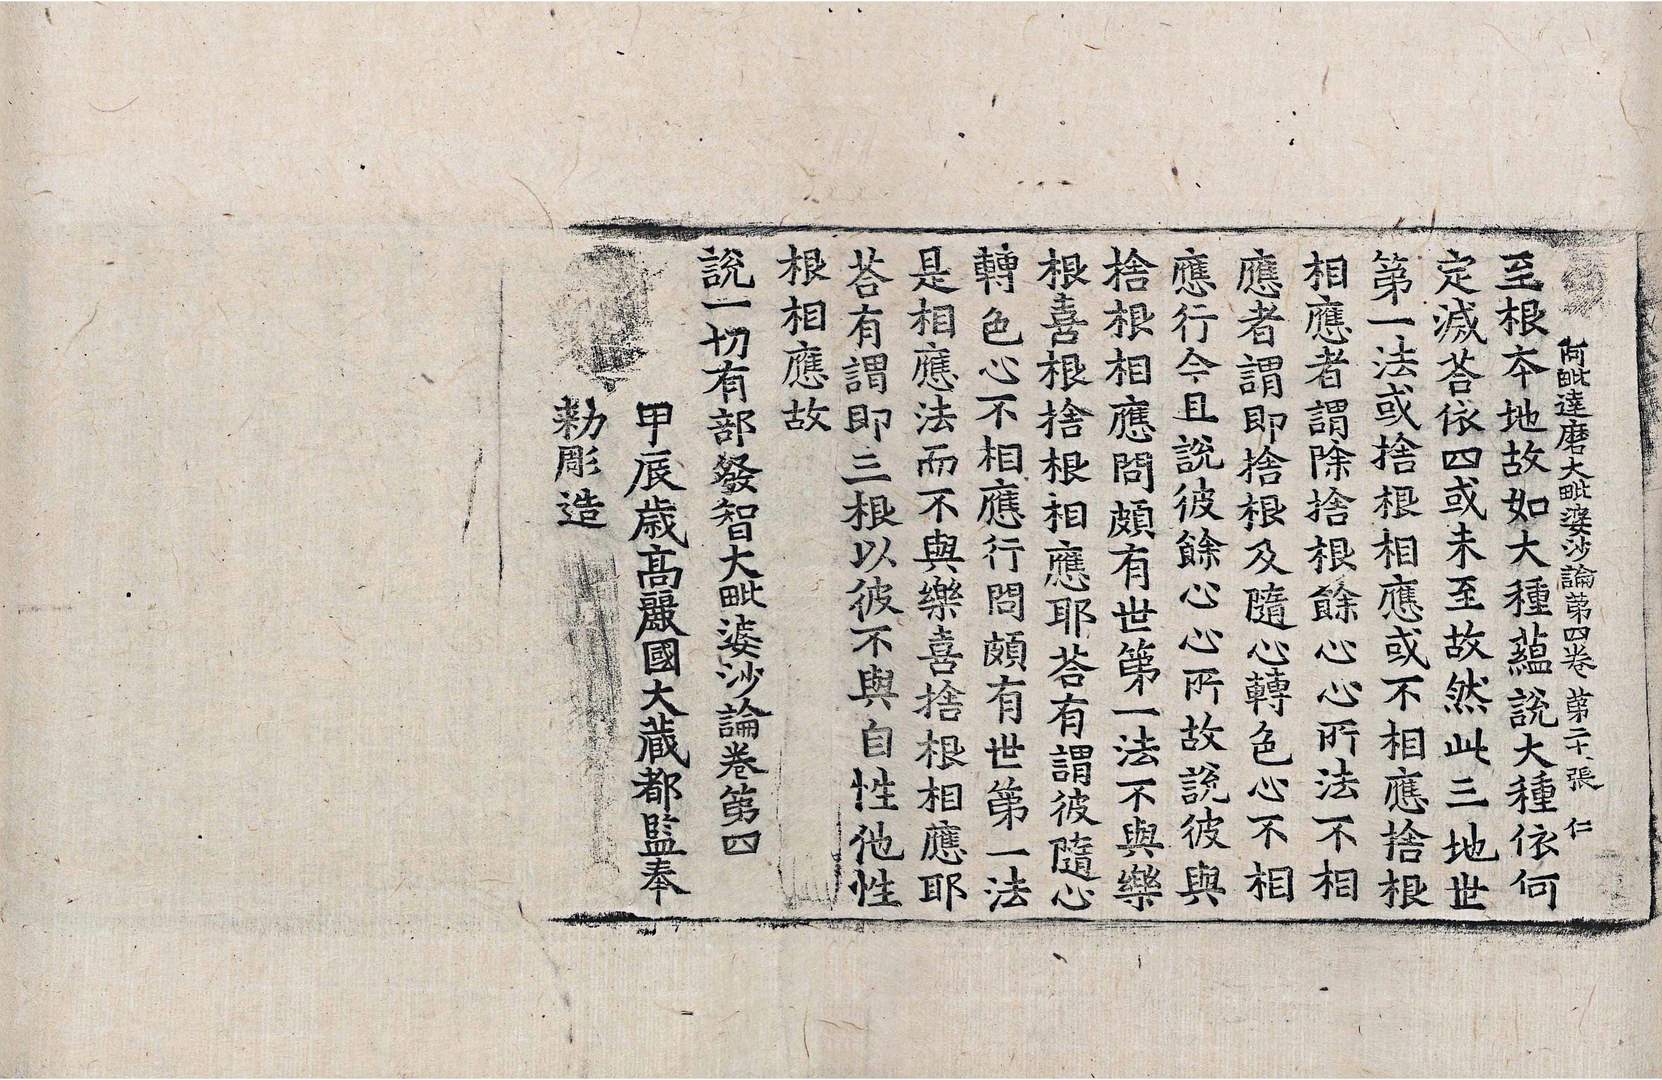 阿毗達磨大毗婆沙論苐四卷 苐二十、張 仁
至根夲地故如大種蘊說大種依何
定滅荅依四或未至故然此三地世
第一法或捨根相應或不相應捨根
相應者謂除捨根餘心心所法不相
應者謂即捨根及隨心轉色心不相
應行今且說彼餘心心所故說彼與
捨根相應問頗有世第一法不與樂
根喜根捨根相應耶荅有謂彼隨心
轉色心不相應行問頗有世第一法
是相應法而不與樂喜捨根相應耶
荅有謂即三根以彼不與自性他性
根相應故
說一切有部發智大毗婆沙論卷第四
甲辰歲高麗國大藏都監奉
勑彫造